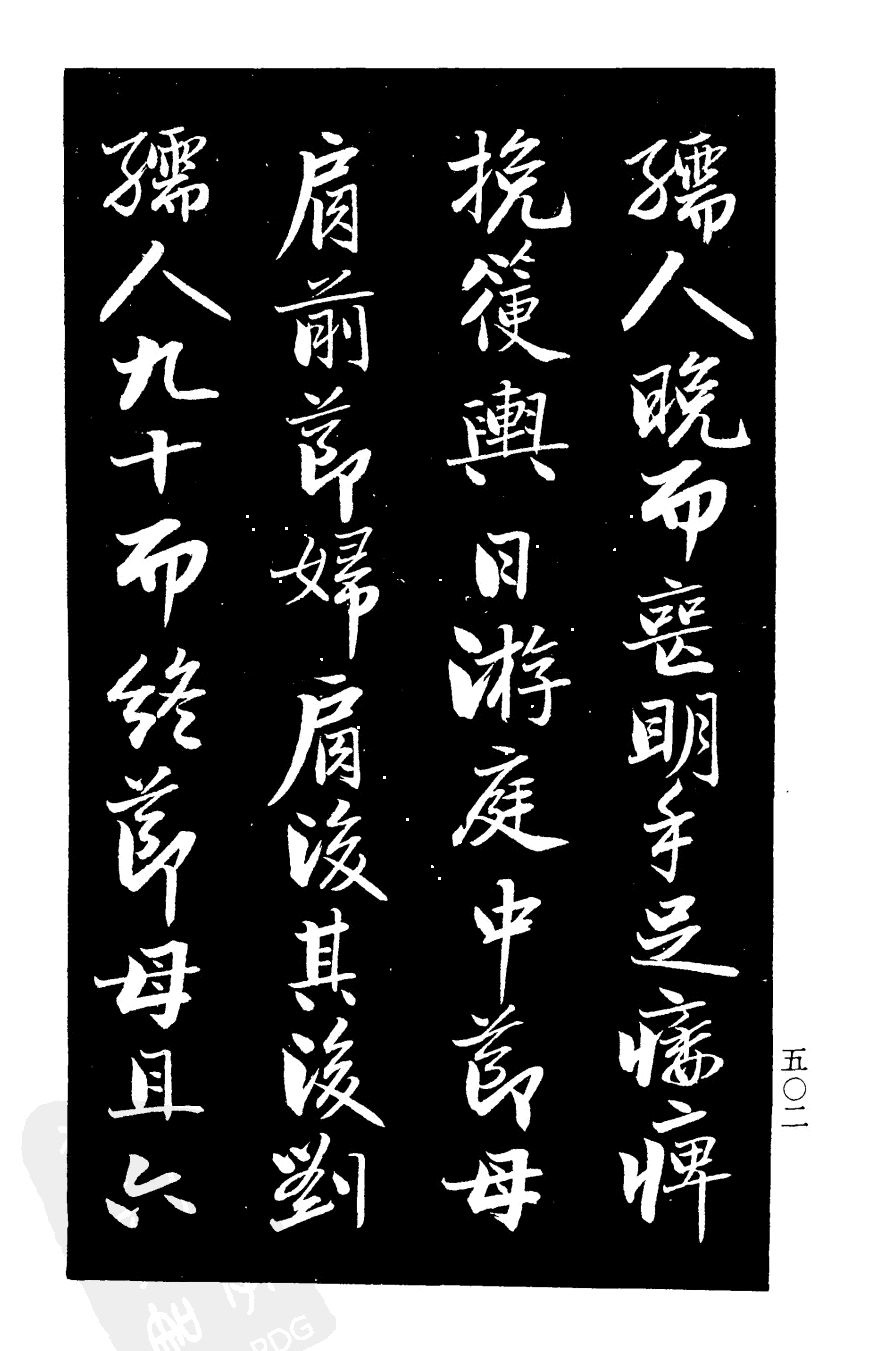 孺人晚而喪明手足痿痺
挽箯輿日游庭中節母
肩前節婦肩後其後劉
孺人九十而終節母且六
五〇二